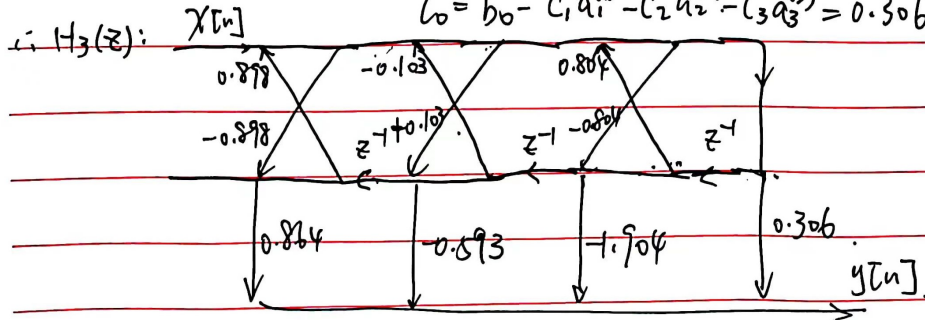 C₀ = b₀ - C₁a₁⁽¹⁾ - C₂a₂⁽²⁾ - C₃a₃⁽³⁾ = 0.306
∴ H₃(z): X[n]
0.898 -0.103 0.804
-0.898 z⁻¹ +0.103 z⁻¹ -0.804 z⁻¹
0.864 -0.593 -1.904 0.306
y[n]